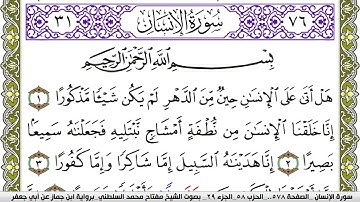 ٧٦ سُورَةُ الإِنسَانِ ٣١
بِسْمِ اللَّهِ الرَّحْمَٰنِ الرَّحِيمِ
هَلْ أَتَىٰ عَلَى الْإِنسَانِ حِينٌ مِّنَ الدَّهْرِ لَمْ يَكُن شَيْئًا مَّذْكُورًا ١
إِنَّا خَلَقْنَا الْإِنسَانَ مِن نُّطْفَةٍ أَمْشَاجٍ نَّبْتَلِيهِ فَجَعَلْنَاهُ سَمِيعًا
بَصِيرًا ٢ إِنَّا هَدَيْنَاهُ السَّبِيلَ إِمَّا شَاكِرًا وَإِمَّا كَفُورًا ٣
سورة الإنسان الصفحة ٥٧٨.. الحزب ٥٨ الجزء ٢٩ بصوت الشيخ مفتاح محمد السلطني برواية ابن جماز عن أبي جعفر